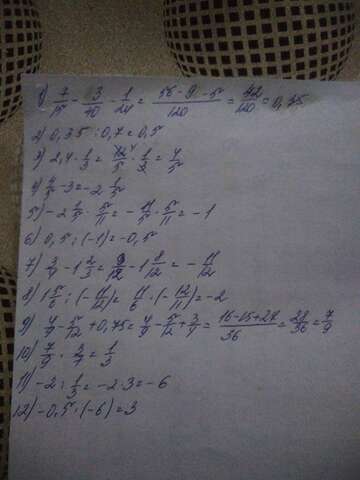 1) 7/15 - 3/40 - 1/24 = (56 - 9 - 5)/120 = 42/120 = 0,35
2) 0,35 : 0,7 = 0,5
3) 2,4 · 1/3 = 12/5 · 1/3 = 4/5
4) 4/5 - 3 = -2 1/5
5) -2 1/5 · 5/11 = -11/5 · 5/11 = -1
6) 0,5 : (-1) = -0,5
7) 3/4 - 1 2/3 = 9/12 - 1 8/12 = -11/12
8) 1 5/6 : (-11/12) = 11/6 · (-12/11) = -2
9) 4/9 - 5/12 + 0,75 = 4/9 - 5/12 + 3/4 = (16-15+27)/36 = 28/36 = 7/9
10) 7/9 · 3/7 = 1/3
11) -2 : 1/3 = -2 · 3 = -6
12) -0,5 · (-6) = 3